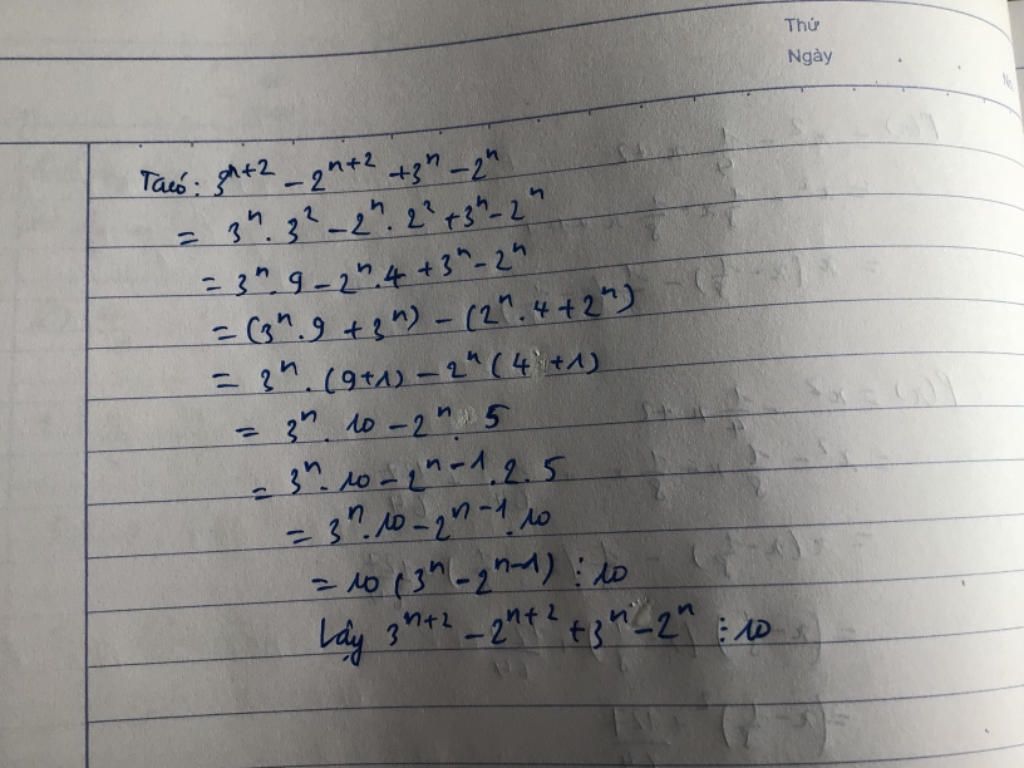 Thứ
Ngày
Ta có: 3ⁿ⁺² - 2ⁿ⁺² + 3ⁿ - 2ⁿ
= 3ⁿ . 3² - 2ⁿ . 2² + 3ⁿ - 2ⁿ
= 3ⁿ . 9 - 2ⁿ . 4 + 3ⁿ - 2ⁿ
= (3ⁿ . 9 + 3ⁿ) - (2ⁿ . 4 + 2ⁿ)
= 3ⁿ . (9+1) - 2ⁿ (4 +1)
= 3ⁿ . 10 - 2ⁿ . 5
= 3ⁿ . 10 - 2ⁿ⁻¹ . 2 . 5
= 3ⁿ . 10 - 2ⁿ⁻¹ . 10
= 10 (3ⁿ - 2ⁿ⁻¹) ⋮ 10
Vậy 3ⁿ⁺² - 2ⁿ⁺² + 3ⁿ - 2ⁿ ⋮ 10